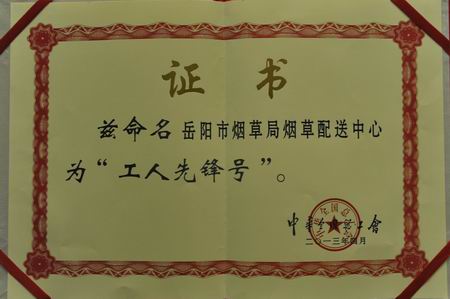 证书
兹命名岳阳市烟草局烟草配送中心
为“工人先锋号”。
中華全国总工會
二〇一三年四月